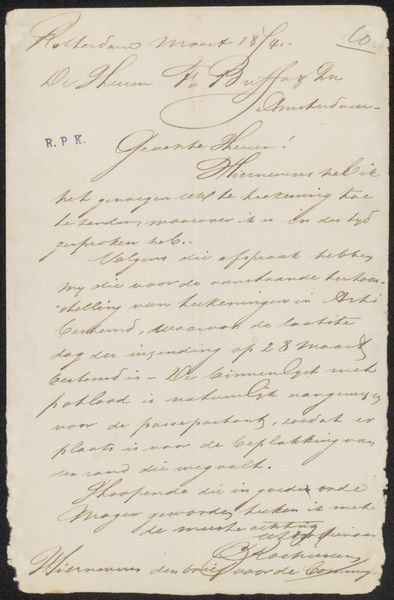 Rotterdam Maart 18 4.
60.
De Heeren Fs Buffa & Zn
Amsterdam
R.P.K.
Geeerte Heeren!
Hiernevens heb ik
het genoegen de teekening toe
te zenden, waarover ik u in der tyd
gesproken heb.
Volgens die afspraak hebben
my die voor de aanstaande
stelling van teekeningen in Arti
bestemd, waarvan de laatste
dag der inzending op 28 Maart
bestemd is - De binnenlyst met
potlood is natuurlyk aangewezen
voor de passepartout, zoodat er
plaats is voor de beplakking van
den rand die wegvalt.
Hoopende die in goede orde
Moge geworden, teeken ik met
de meeste achting
UEd Dienaar
Rochussen
Hiernevens den brief voor de